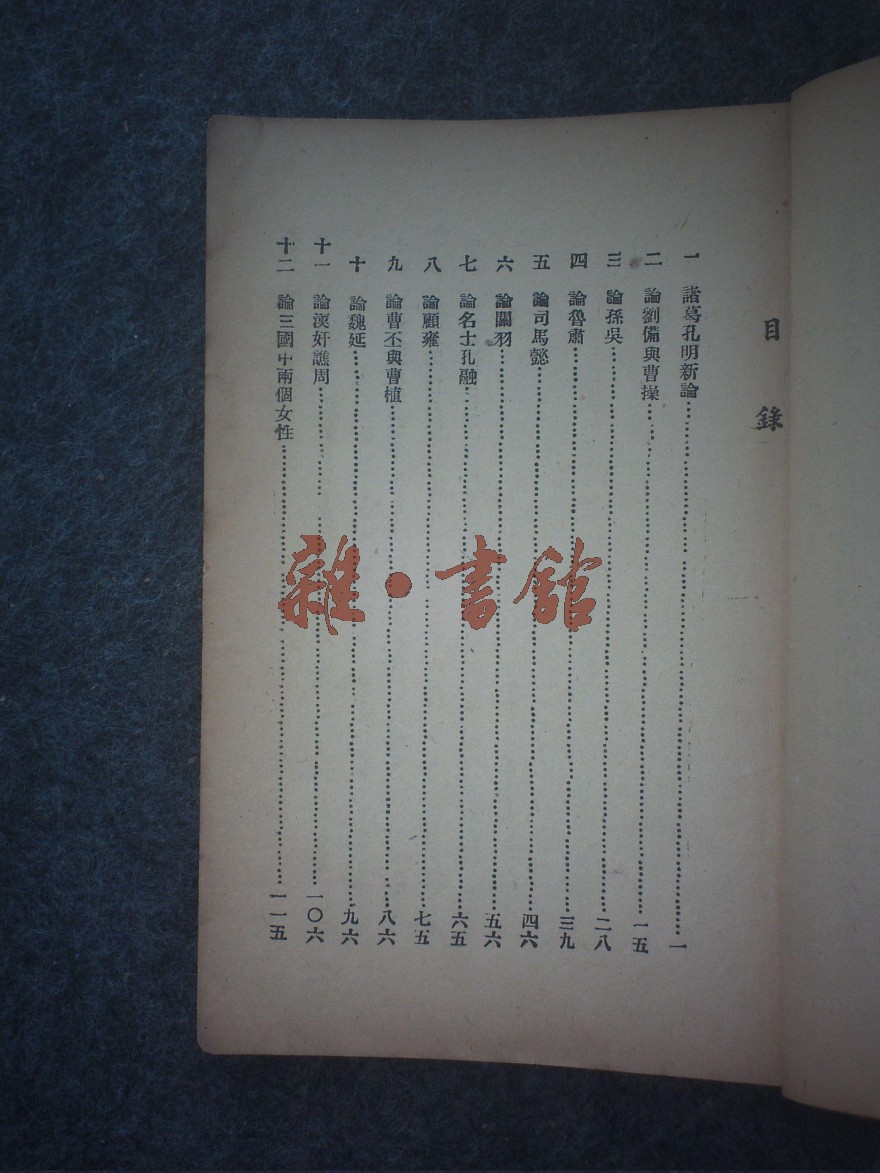 目錄
一 諸葛孔明新論……一
二 論劉備與曹操……一五
三 論孫吳……二八
四 論魯肅……三九
五 論司馬懿……四六
六 論關羽……五六
七 論名士孔融……六五
八 論顧雍……七五
九 論曹丕與曹植……八六
十 論魏延……九六
十一 論漢奸譙周……一〇六
十二 論三國中兩個女性……一一五
雜·書館